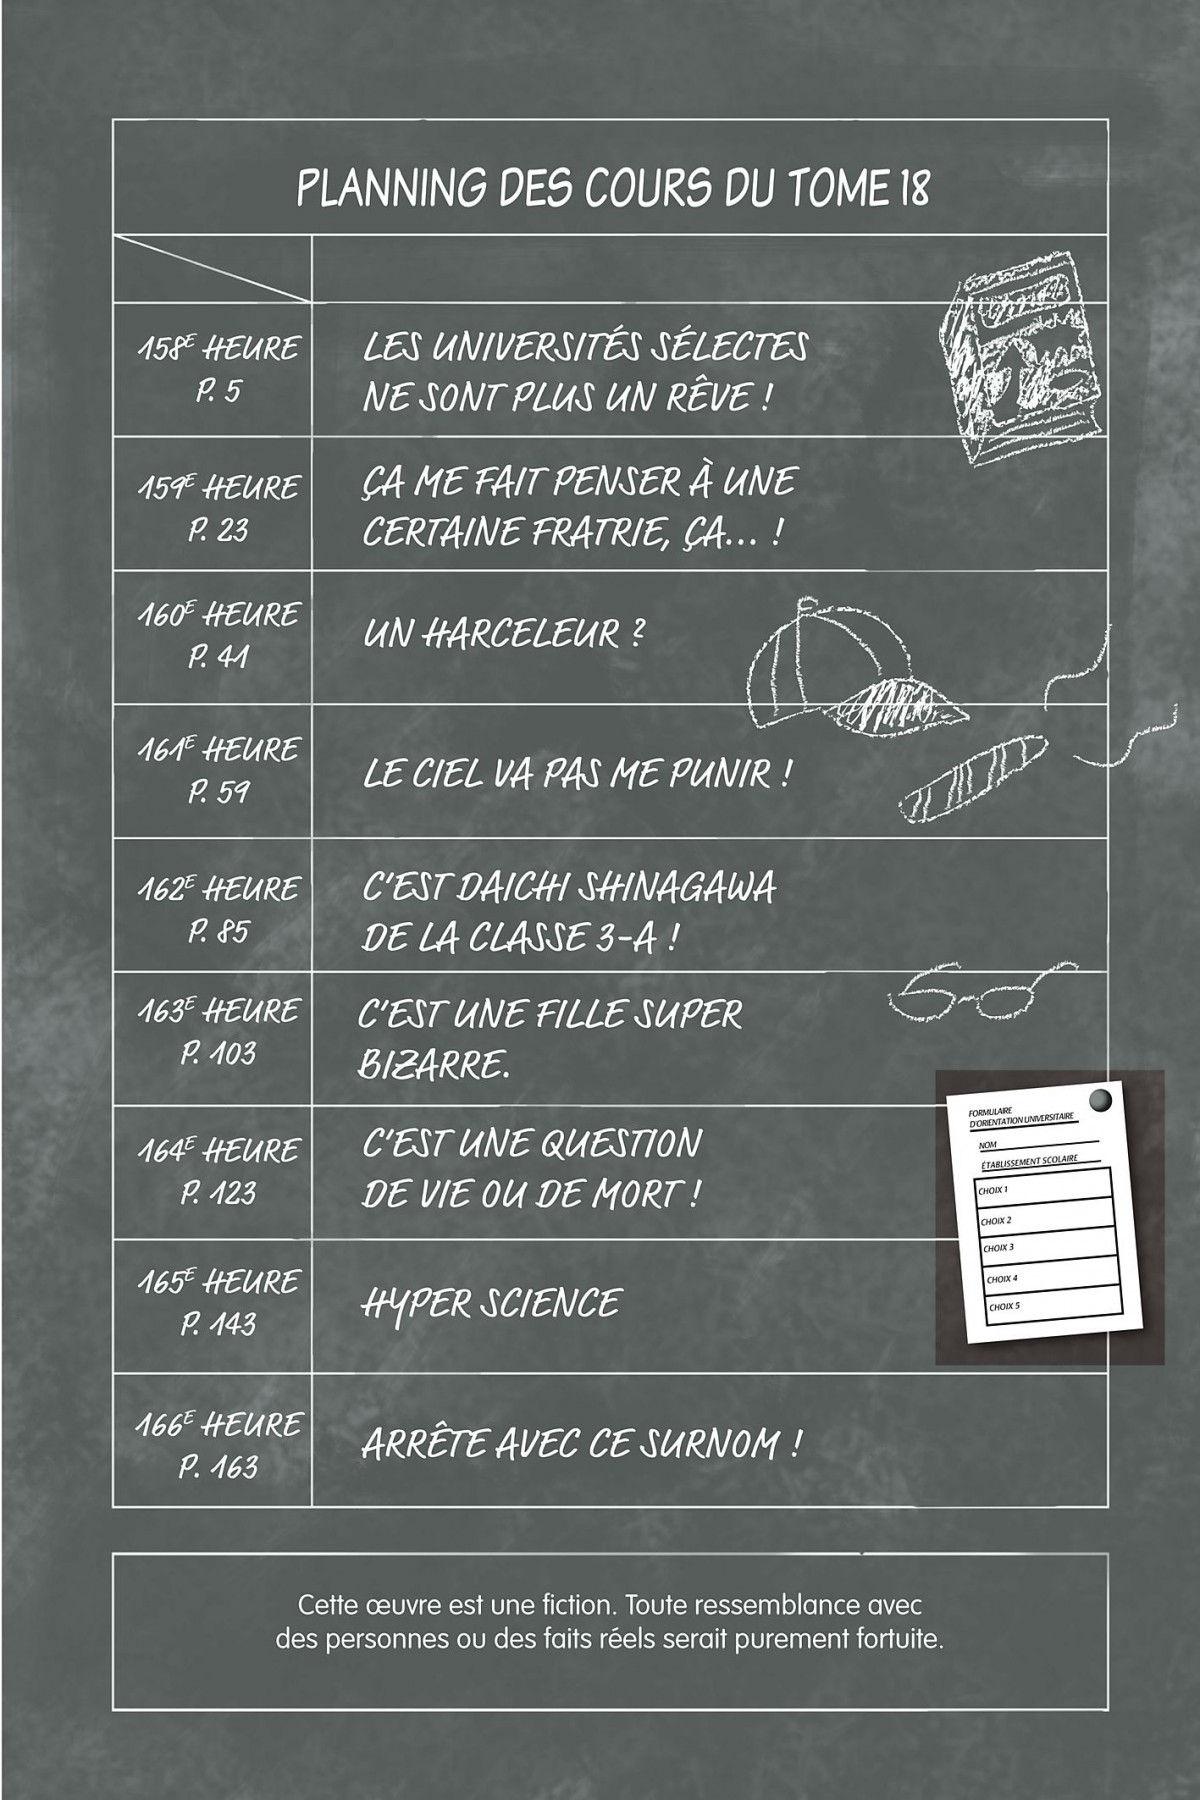 PLANNING DES COURS DU TOME 18
158E HEURE
P. 5
LES UNIVERSITÉS SÉLECTES
NE SONT PLUS UN RÊVE !
159E HEURE
P. 23
ÇA ME FAIT PENSER À UNE
CERTAINE FRATRIE, ÇA... !
160E HEURE
P. 41
UN HARCELEUR ?
161E HEURE
P. 59
LE CIEL VA PAS ME PUNIR !
162E HEURE
P. 85
C'EST DAICHI SHINAGAWA
DE LA CLASSE 3-A !
163E HEURE
P. 103
C'EST UNE FILLE SUPER
BIZARRE.
164E HEURE
P. 123
C'EST UNE QUESTION
DE VIE OU DE MORT !
165E HEURE
P. 143
HYPER SCIENCE
166E HEURE
P. 163
ARRÊTE AVEC CE SURNOM !
FORMULAIRE
D'ORIENTATION UNIVERSITAIRE
NOM
ÉTABLISSEMENT SCOLAIRE
CHOIX 1
CHOIX 2
CHOIX 3
CHOIX 4
CHOIX 5
Cette œuvre est une fiction. Toute ressemblance avec
des personnes ou des faits réels serait purement fortuite.